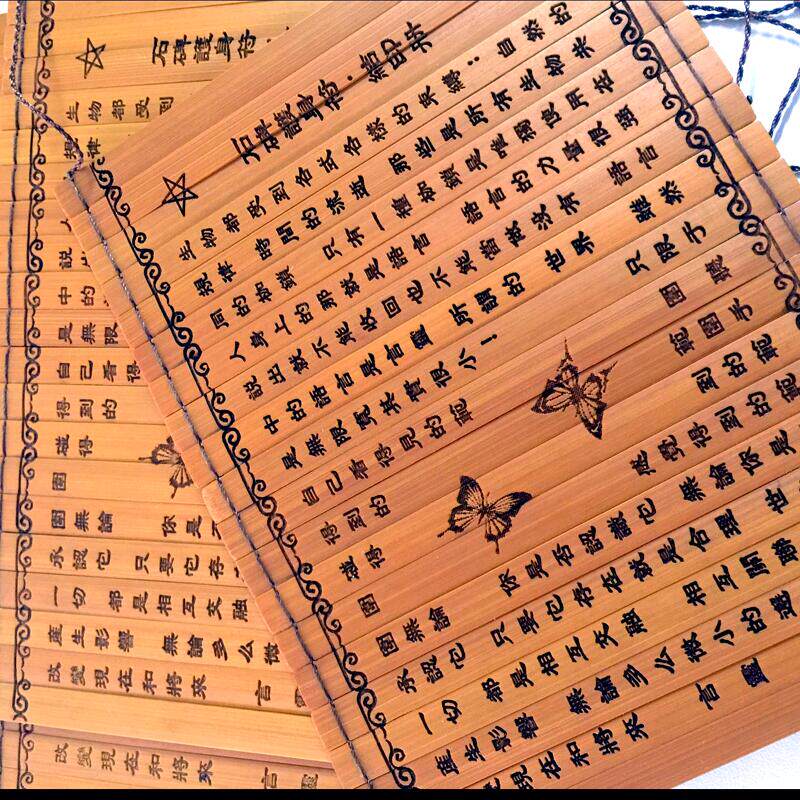 石碑護身符：
生物都受到
規律
人
說出
中的
是無限
自己看得
得到的
碰得
圍
圍無論 你是
承認它 只要它存
一切 都是相互交融
產生影響 無論多么微
改變現在和將來 言
改變現在和將來 言靈
石碑護身符：結印所
生物都受到各式各樣的災纏；自然的
規律 時間的流逝 那些是所有生物共
同的枷鎖 只有一種枷鎖是唯獨使用在
人身上的那就是語言 語言的力量很強
說出就不能收回也不能當做沒有 語言
中的語言是言靈 所謂的 世界 雖然
是無限寬其實很小！ 只限于
自己看得見的範 圍 聽
得到的 範圍手
碰得 到的範
圍 感覺得到的範
圍無論 你是否認識它 無論你是
承認它 只要它存在就是合理 世
一切 都是相互交融 相互關聯
產生影響 無論多么微小的遭
改變現在和將來 言靈